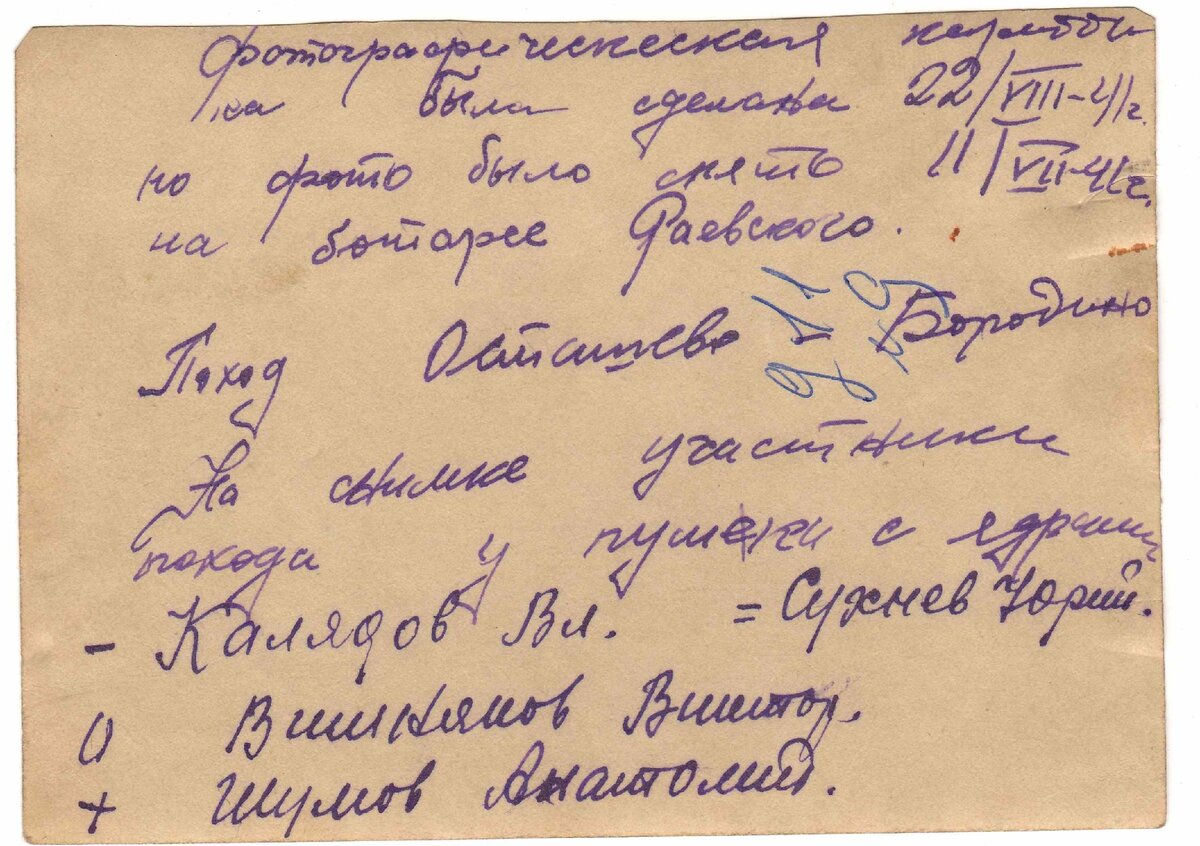 фотографическеская карточ
ка была сделана 22/VIII-41г.
но фото было снято 11/VII-41г.
на батарее Раевского.
Поход Осташево - Бородино
На снимке участники
похода у пушки с ядрами
- Калядов Вл. = Сухнев Юрий.
0 Вишняков Виктор.
+ Шумов Анатолий.